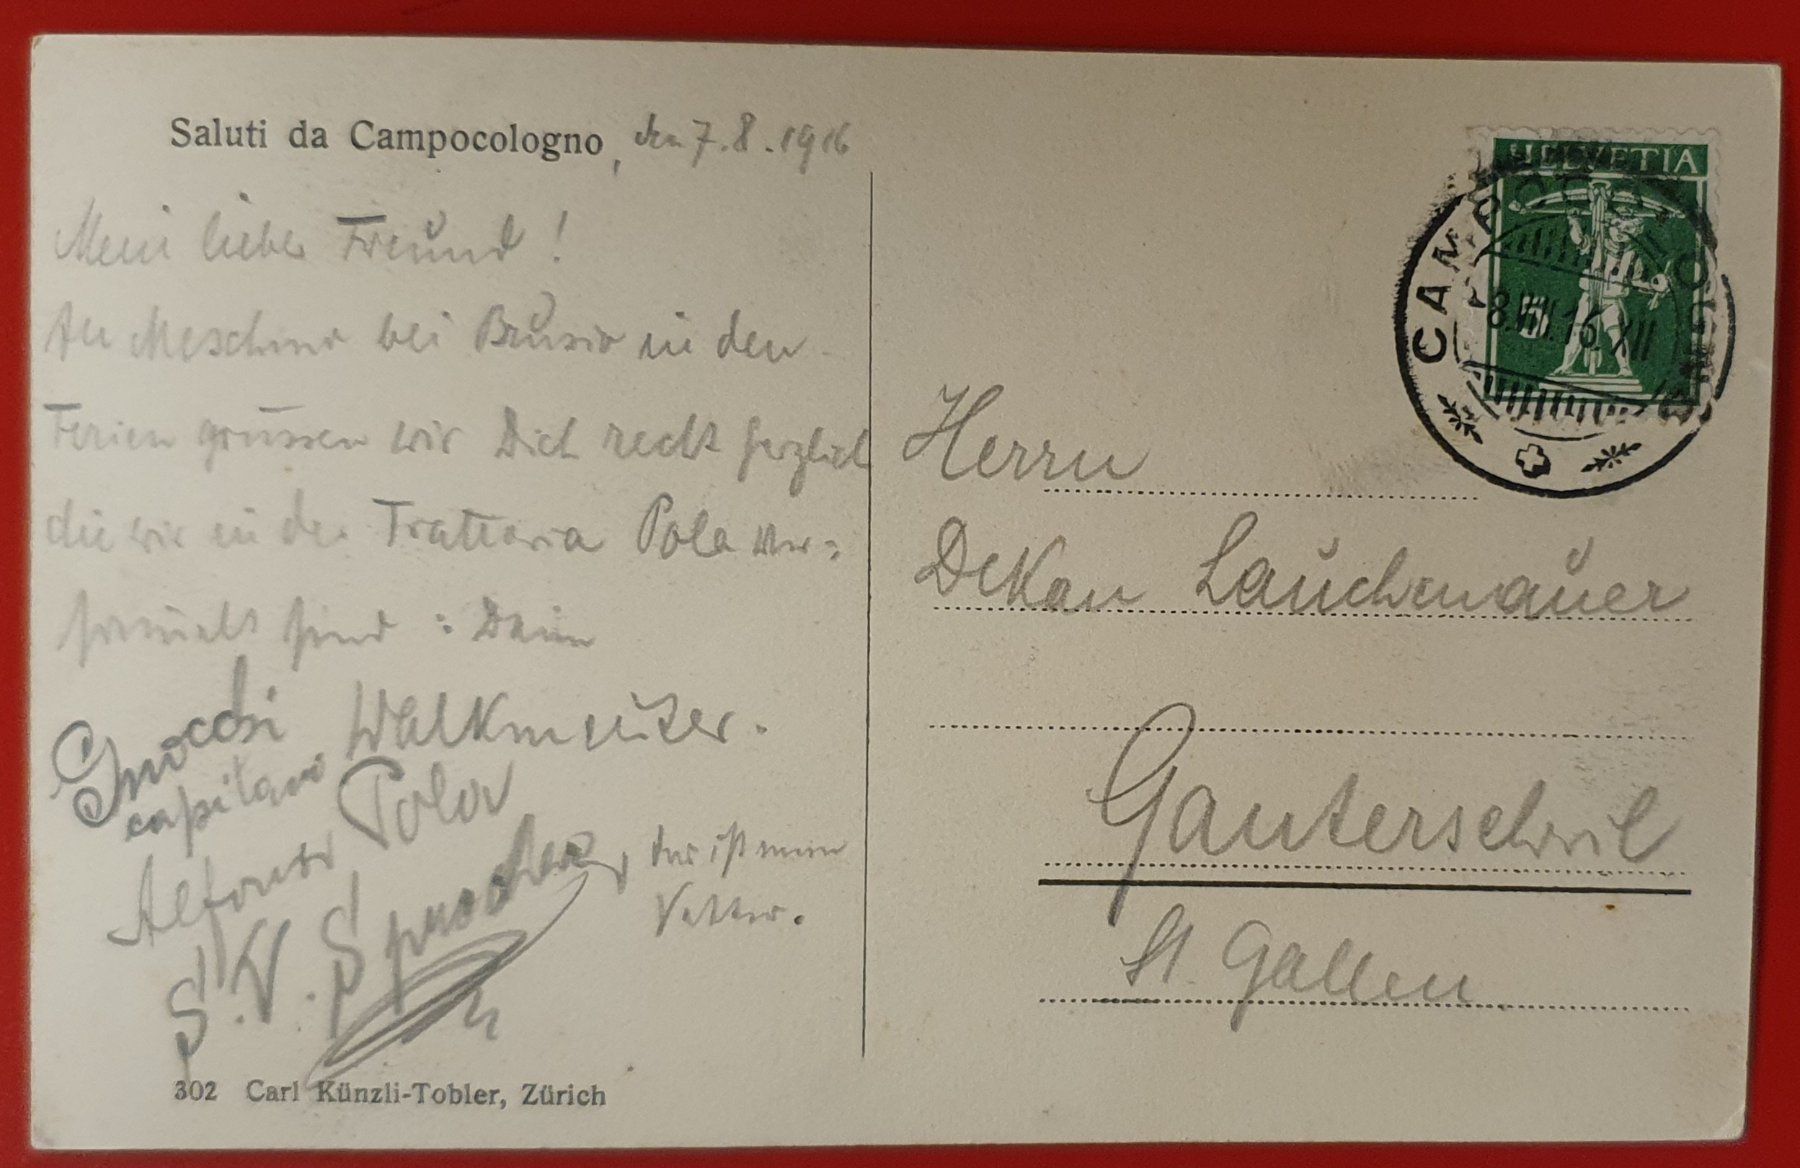 Saluti da Campocologno, den 7.8.1916
Mein lieber Freund!
Au Meschino bei Brusio in den
Ferien grüssen wir Dich recht herzlich
die wir in der Trattoria Pola ver=
sammelt sind: Dein
Walkmeister.
capitano
Pola
Alfonso
S. V. Sprecher, der ist mein
Vetter.
302 Carl Künzli-Tobler, Zürich
HELVETIA
5
CAMPOCOLOGNO
-8.VIII.16.XII
Herrn
Dekan Lauchenauer
Ganterschwil
St. Gallen